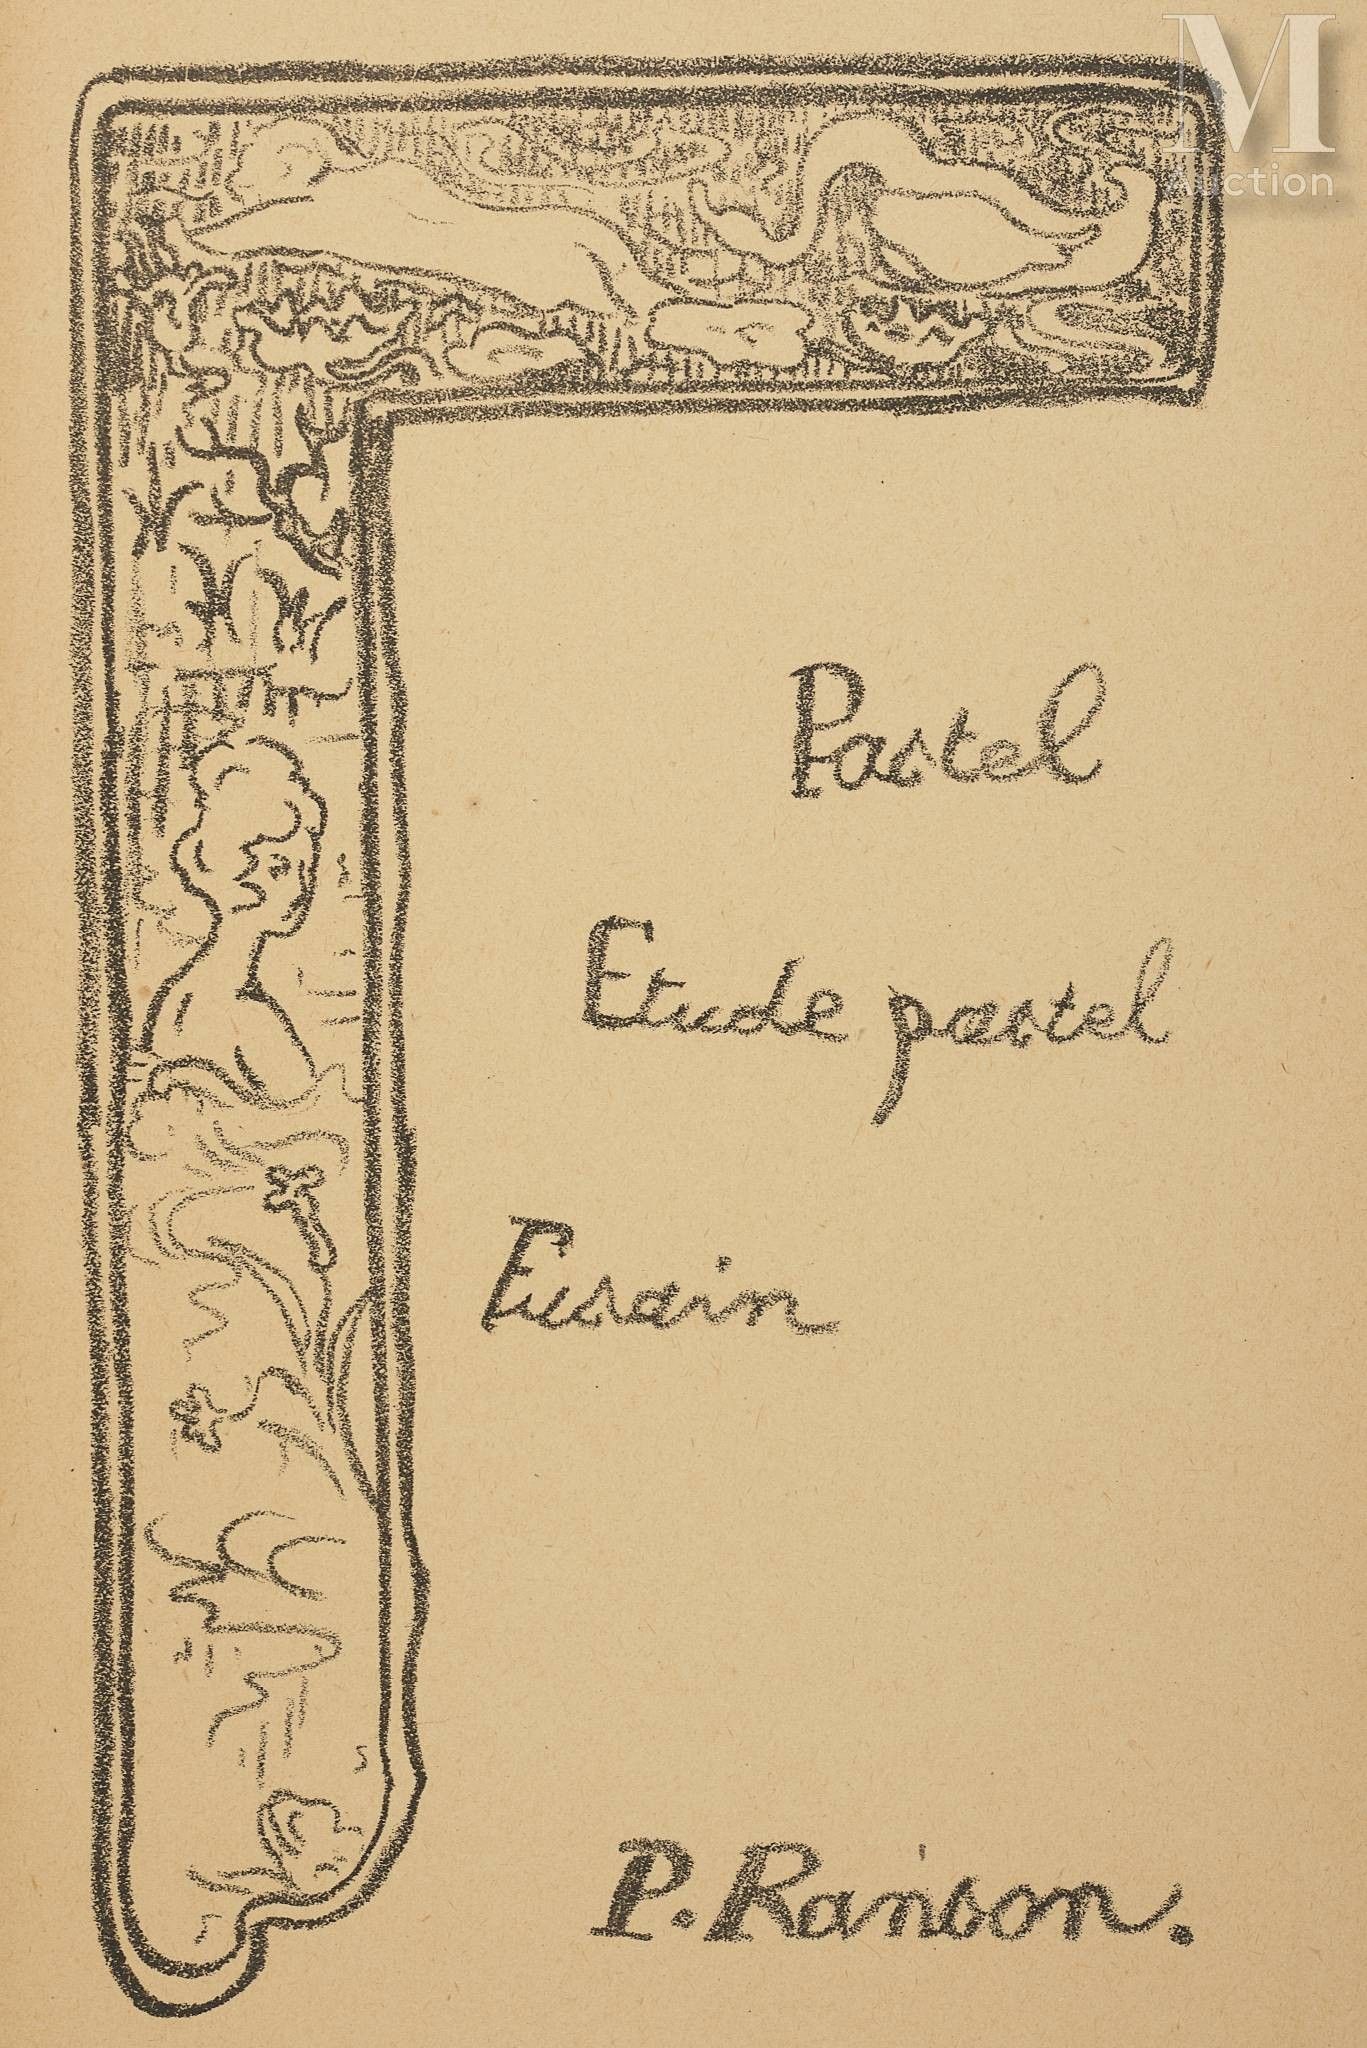 M
Auction
Pastel
Etude pastel
Fusain
P. Ranson.